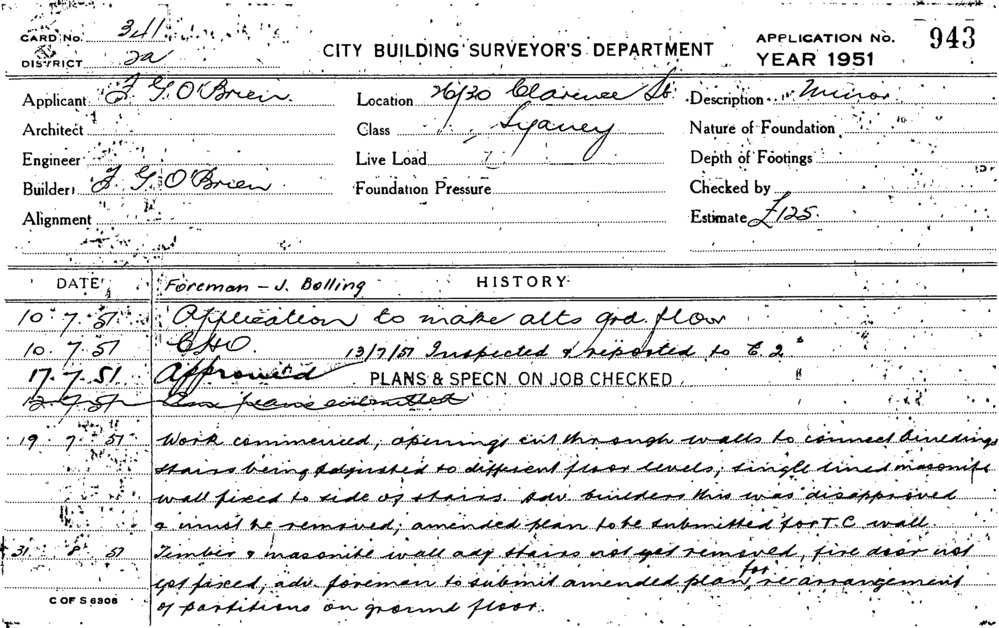 CARD No. 341
DISTRICT 2a
CITY BUILDING SURVEYOR'S DEPARTMENT
APPLICATION No. 943
YEAR 1951
Applicant F. G. O'Brien.
Architect
Engineer
Builder F. G. O'Brien
Alignment
Location 26/30 Clarence St.
Class Sydney
Live Load
Foundation Pressure
Description Minor
Nature of Foundation
Depth of Footings
Checked by
Estimate £125.
DATE Foreman - J. Bolling HISTORY
10 7 51 Application to make alts grd. floor
10. 7. 51 CHO. 13/7/51 Inspected & reported to C.2
17. 7. 51 Approved PLANS & SPECN. ON JOB CHECKED
12 7 51 plans submitted
19 7 51 Work commenced, openings cut through walls to connect buildings
stairs being adjusted to different floor levels; single lined masonite
wall fixed to side of stairs. adv. builders this was disapproved
& must be removed; amended plan to be submitted for T.C wall
31 8 51 Timber & masonite wall adj stairs not yet removed, fire door not
yet fixed, adv. foreman to submit amended plan for re-arrangement
of partitions on ground floor.
C OF S 6308